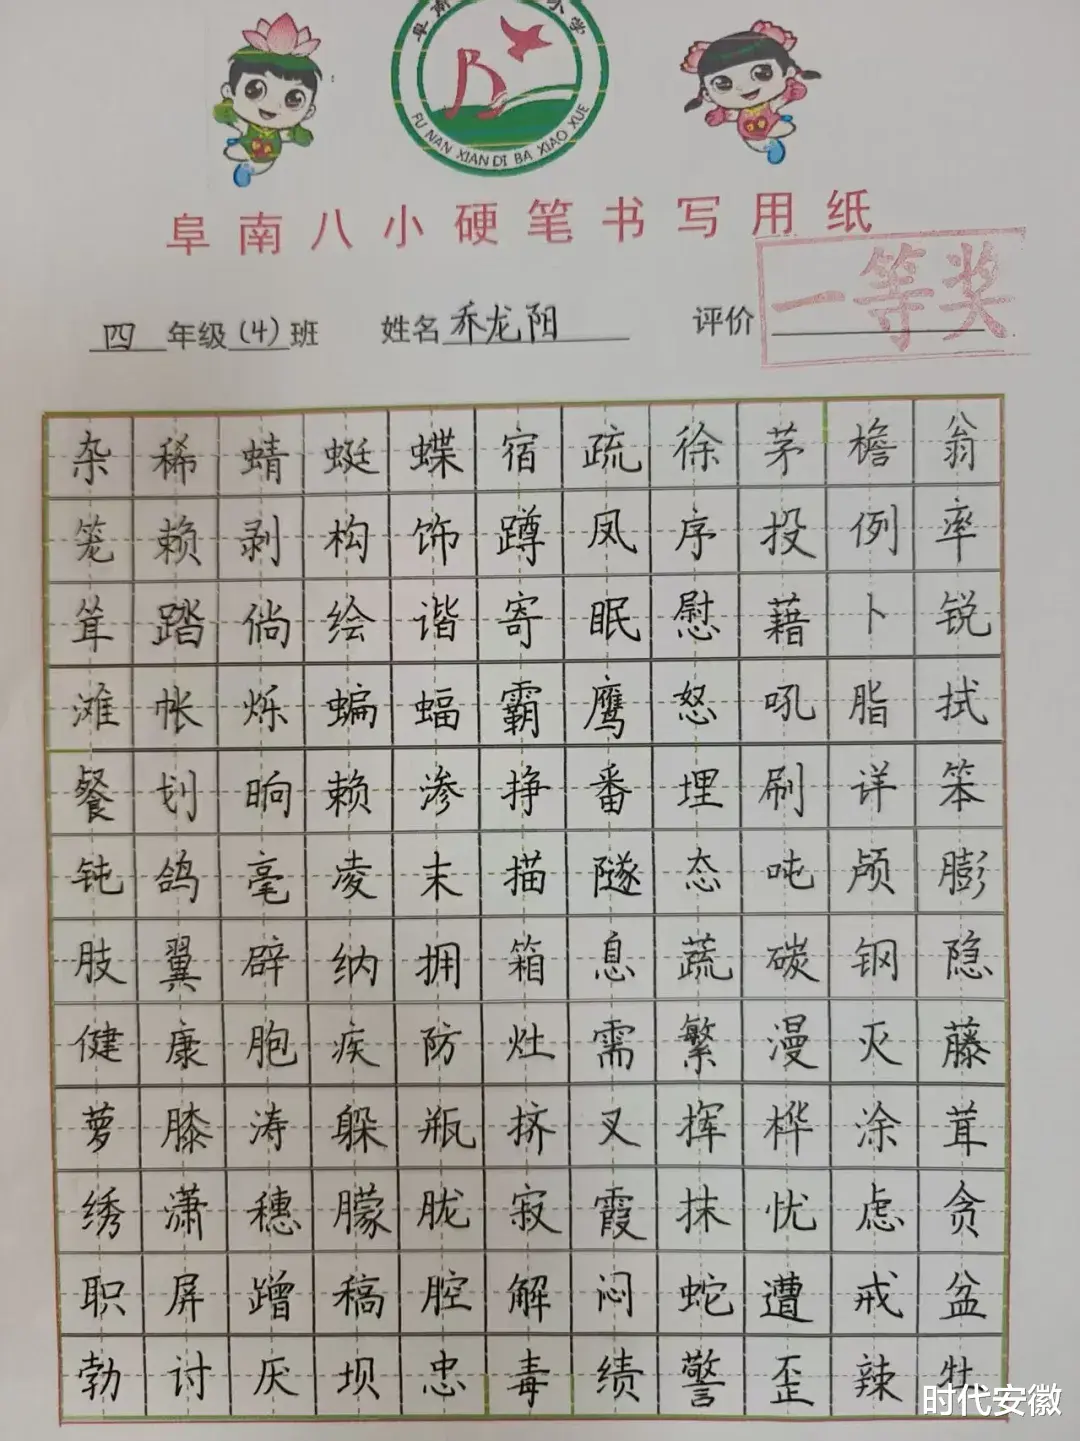 阜南 小学
FU NAN XIAN DI BA XIAO XUE
阜南八小硬笔书写用纸
四年级(4)班 姓名乔龙阳 评价 一等奖
杂稀蜻蜓蝶宿疏徐茅檐翁
笼赖剥构饰蹲凤序投例率
耸踏倘绘谐寄眠慰藉卜锐
滩帐烁蝙蝠霸鹰怒吼脂拭
餐划晌赖渗挣番埋刷详笨
钝鸽毫凌末描隧态吨颅膨
肢翼辟纳拥箱息蔬碳钢隐
健康胞疾防灶需繁漫灭藤
萝膝涛躲瓶挤叉挥桦涂茸
绣潇穗朦胧寂霞抹忧虑贪
职屏蹭稿腔解闷蛇遭戒盆
勃讨厌坝忠毒绩警歪辣牡
时代安徽